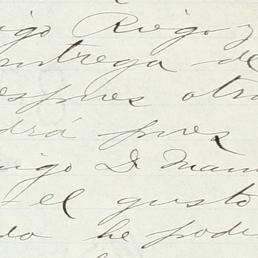 igo Riego y
entrega de
espues otr
drá pues
migo D Manu
el gusto
do he podi